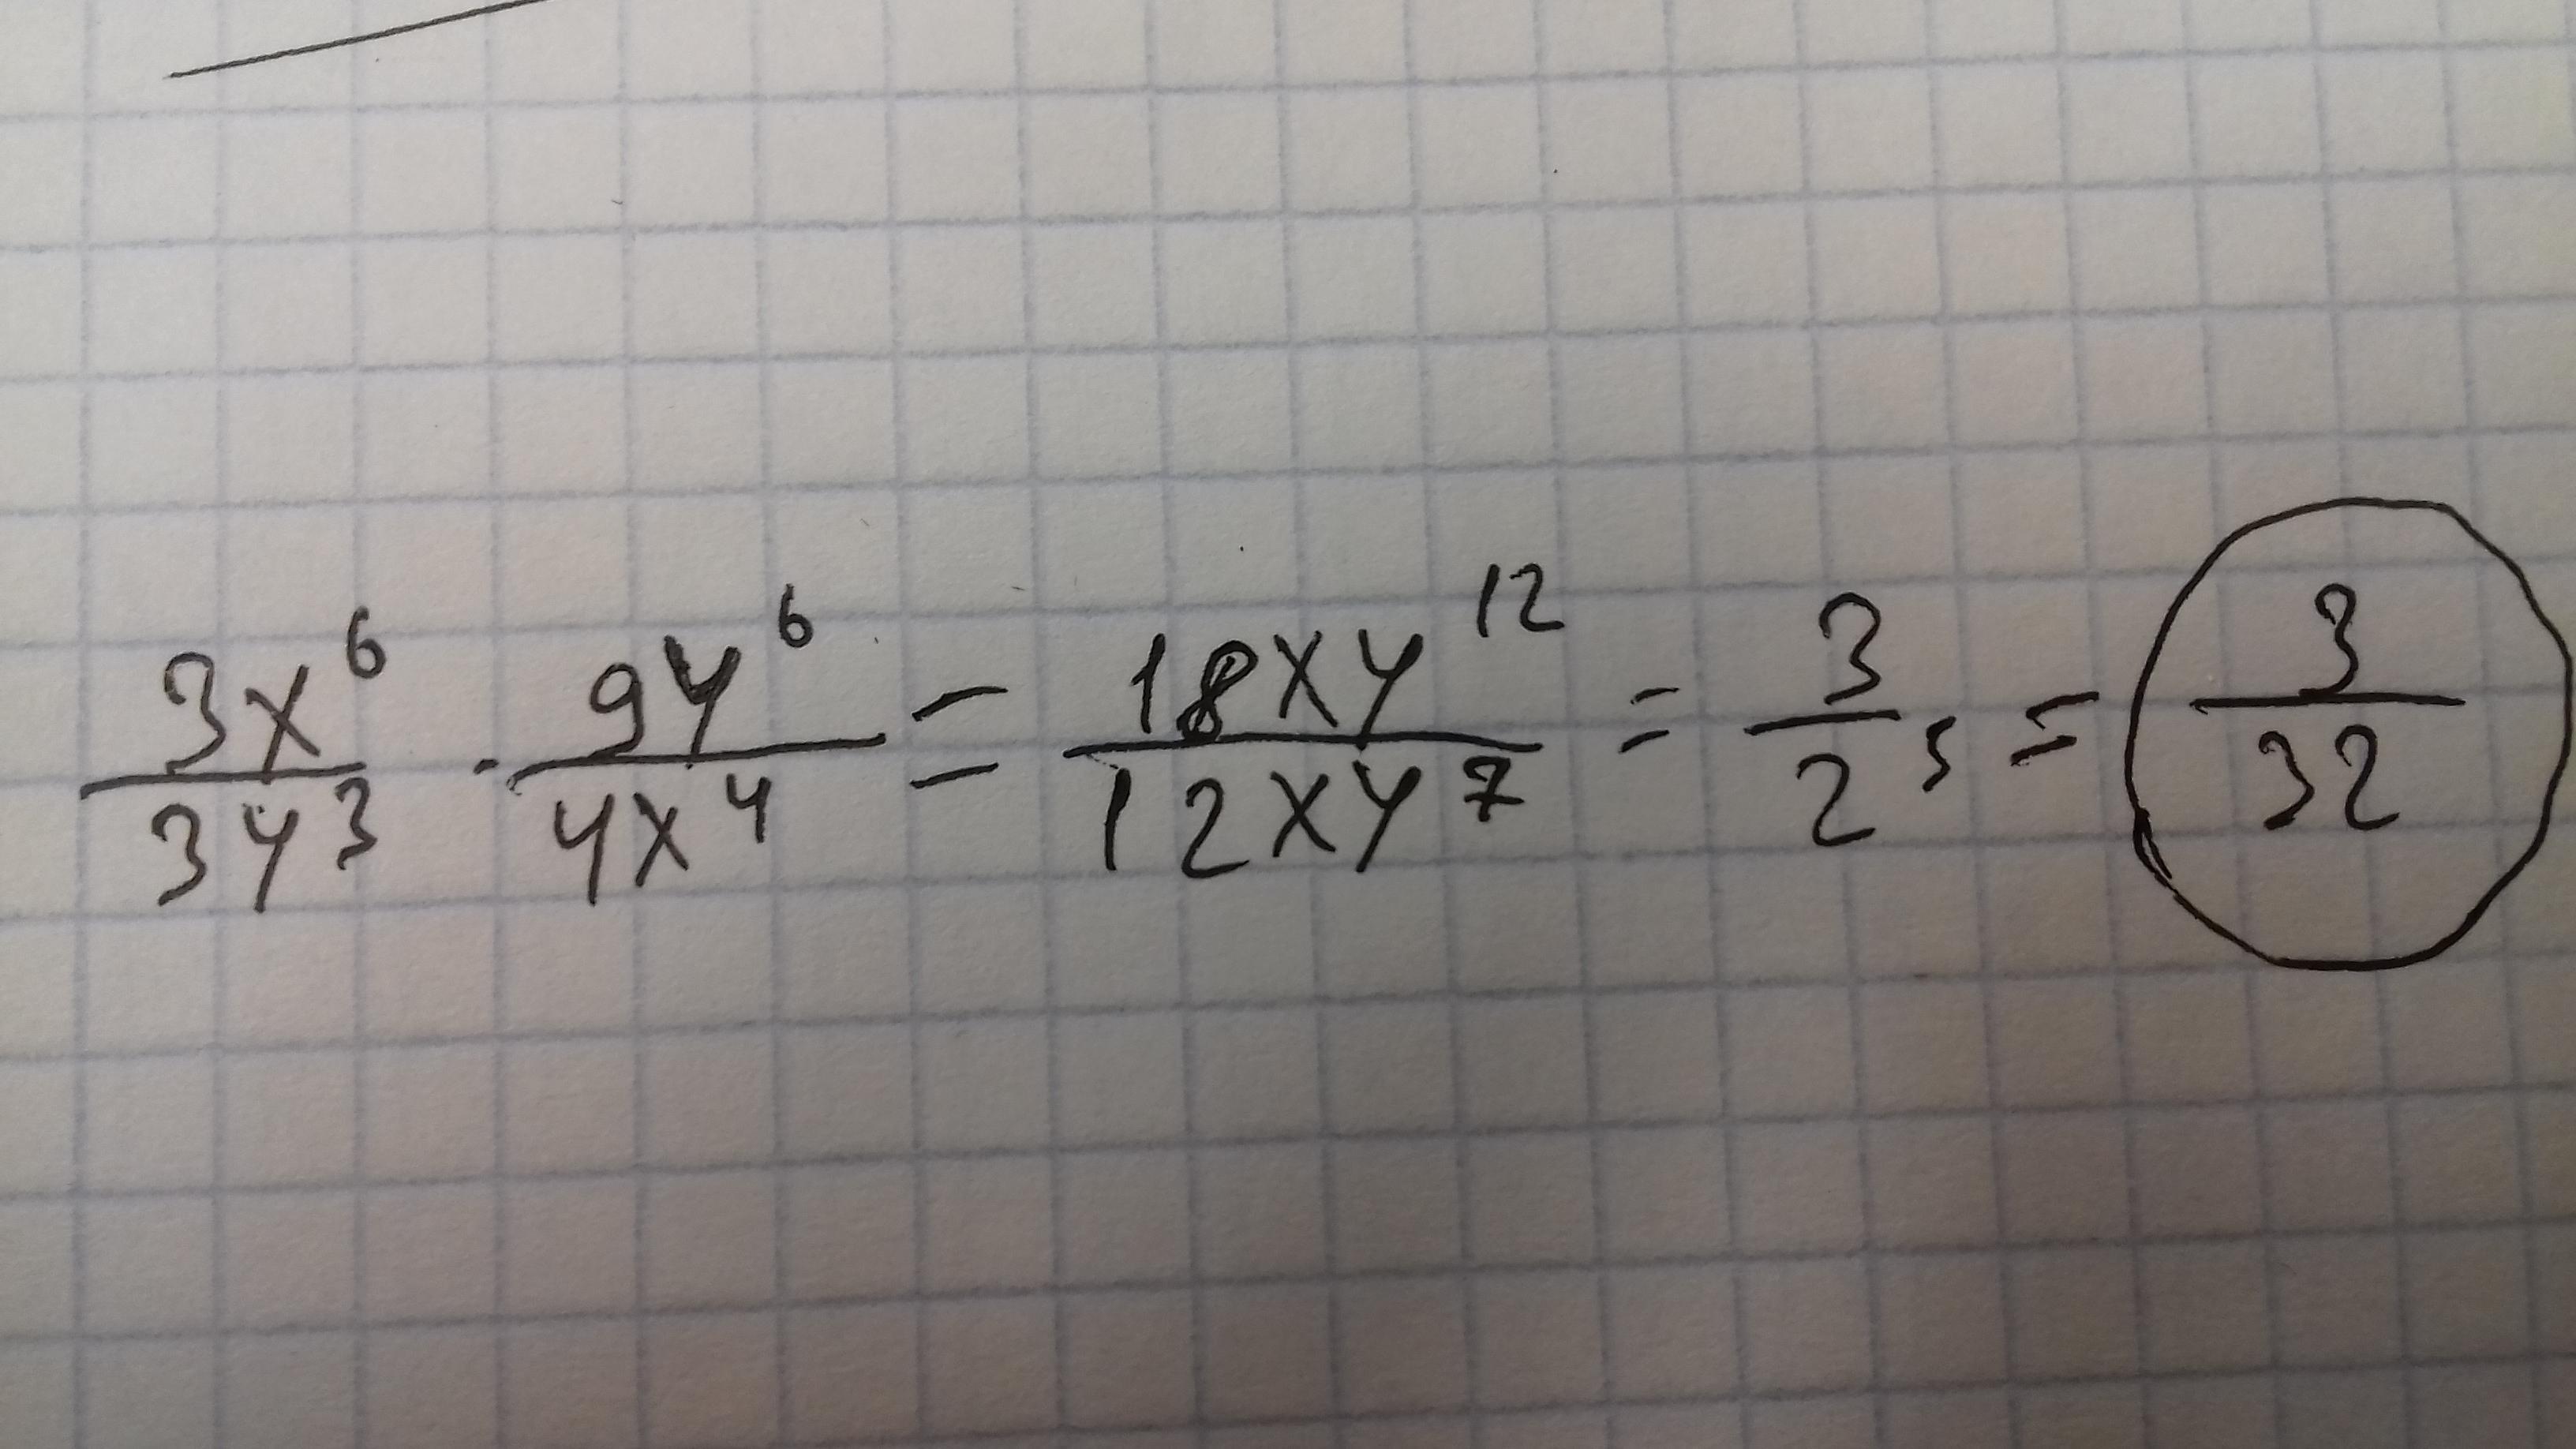 3x⁶/3y³ · 9y⁶/4x⁴ = 18xy¹²/12xy⁷ = 3/2⁵ = 3/32